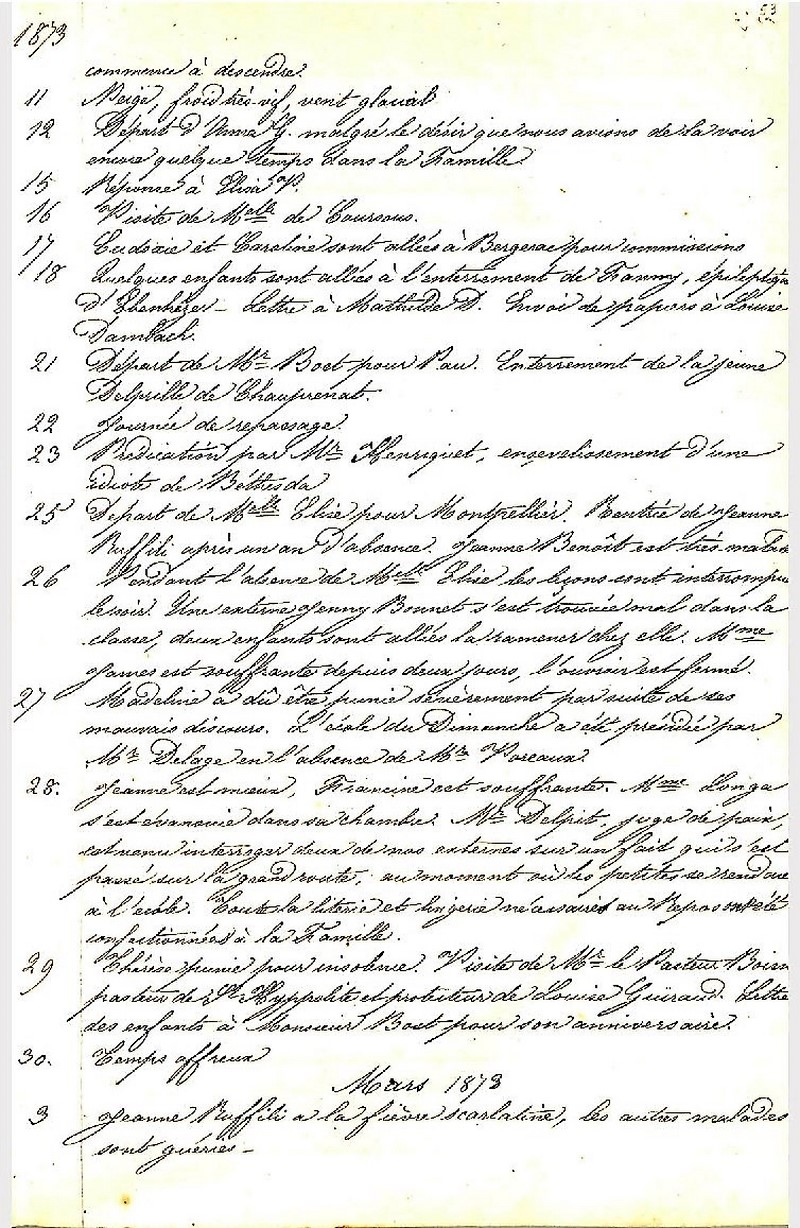 53
1873
commence à descendre.
11 Neige, froid très vif, vent glacial
12 Départ d'Anna G. malgré le désir que nous avions de la voir
encore quelque temps dans la Famille
15 Réponse à Elisa P.
16 Visite de Melle de Coursous.
17 Eudoxie et Caroline sont allées à Bergerac pour commissions
18 Quelques enfants sont allées à l'enterrement de Fanny, épileptique
d'Ebenhézer - Lettre à Mathilde D. Envoi de papiers à Louise
Dambach.
21 Départ de Mr Bost pour Pau. Enterrement de la jeune
Delprille de Chauprenat.
22 Journée de repassage.
23 Prédication par Mr Henriquet, ensevelissement d'une
idiote de Béthesda
25 Départ de Melle Elise pour Montpellier. Rentrée de Jeanne
Ruffili après un an d'absence. Jeanne Benoît est très malade
26 Pendant l'absence de Melle Elise les leçons sont interrompues
le soir. Une externe Jenny Bonnet s'est trouvée mal dans la
classe, deux enfants sont allées la ramener chez elle. Mme
James est souffrante depuis deux jours, l'ouvroir est fermé.
27 Madeline a dû être punie sévèrement par suite de ses
mauvais discours. L'école du Dimanche a été présidée par
Mr Delage en l'absence de Mr Poreaux.
28. Jeanne est mieux, Francine est souffrante. Mme Longa
s'est évanouie dans sa chambre. Mr Delpit, juge de paix,
est venu interroger deux de nos externes sur un fait qui s'est
passé sur la grand route, au moment où les petites se rendaient
à l'école. Toute la literie et lingerie nécessaires au Repos ont été
confectionnées à la Famille.
29 Thérèse punie pour insolence. Visite de Mr le Pasteur
pasteur de St Hyppolite et protecteur de Louise Guiraud. Lettre
des enfants à Monsieur Bost pour son anniversaire.
30. Temps affreux
Mars 1873
3 Jeanne Ruffili a la fièvre scarlatine, les autres malades
sont guéries -